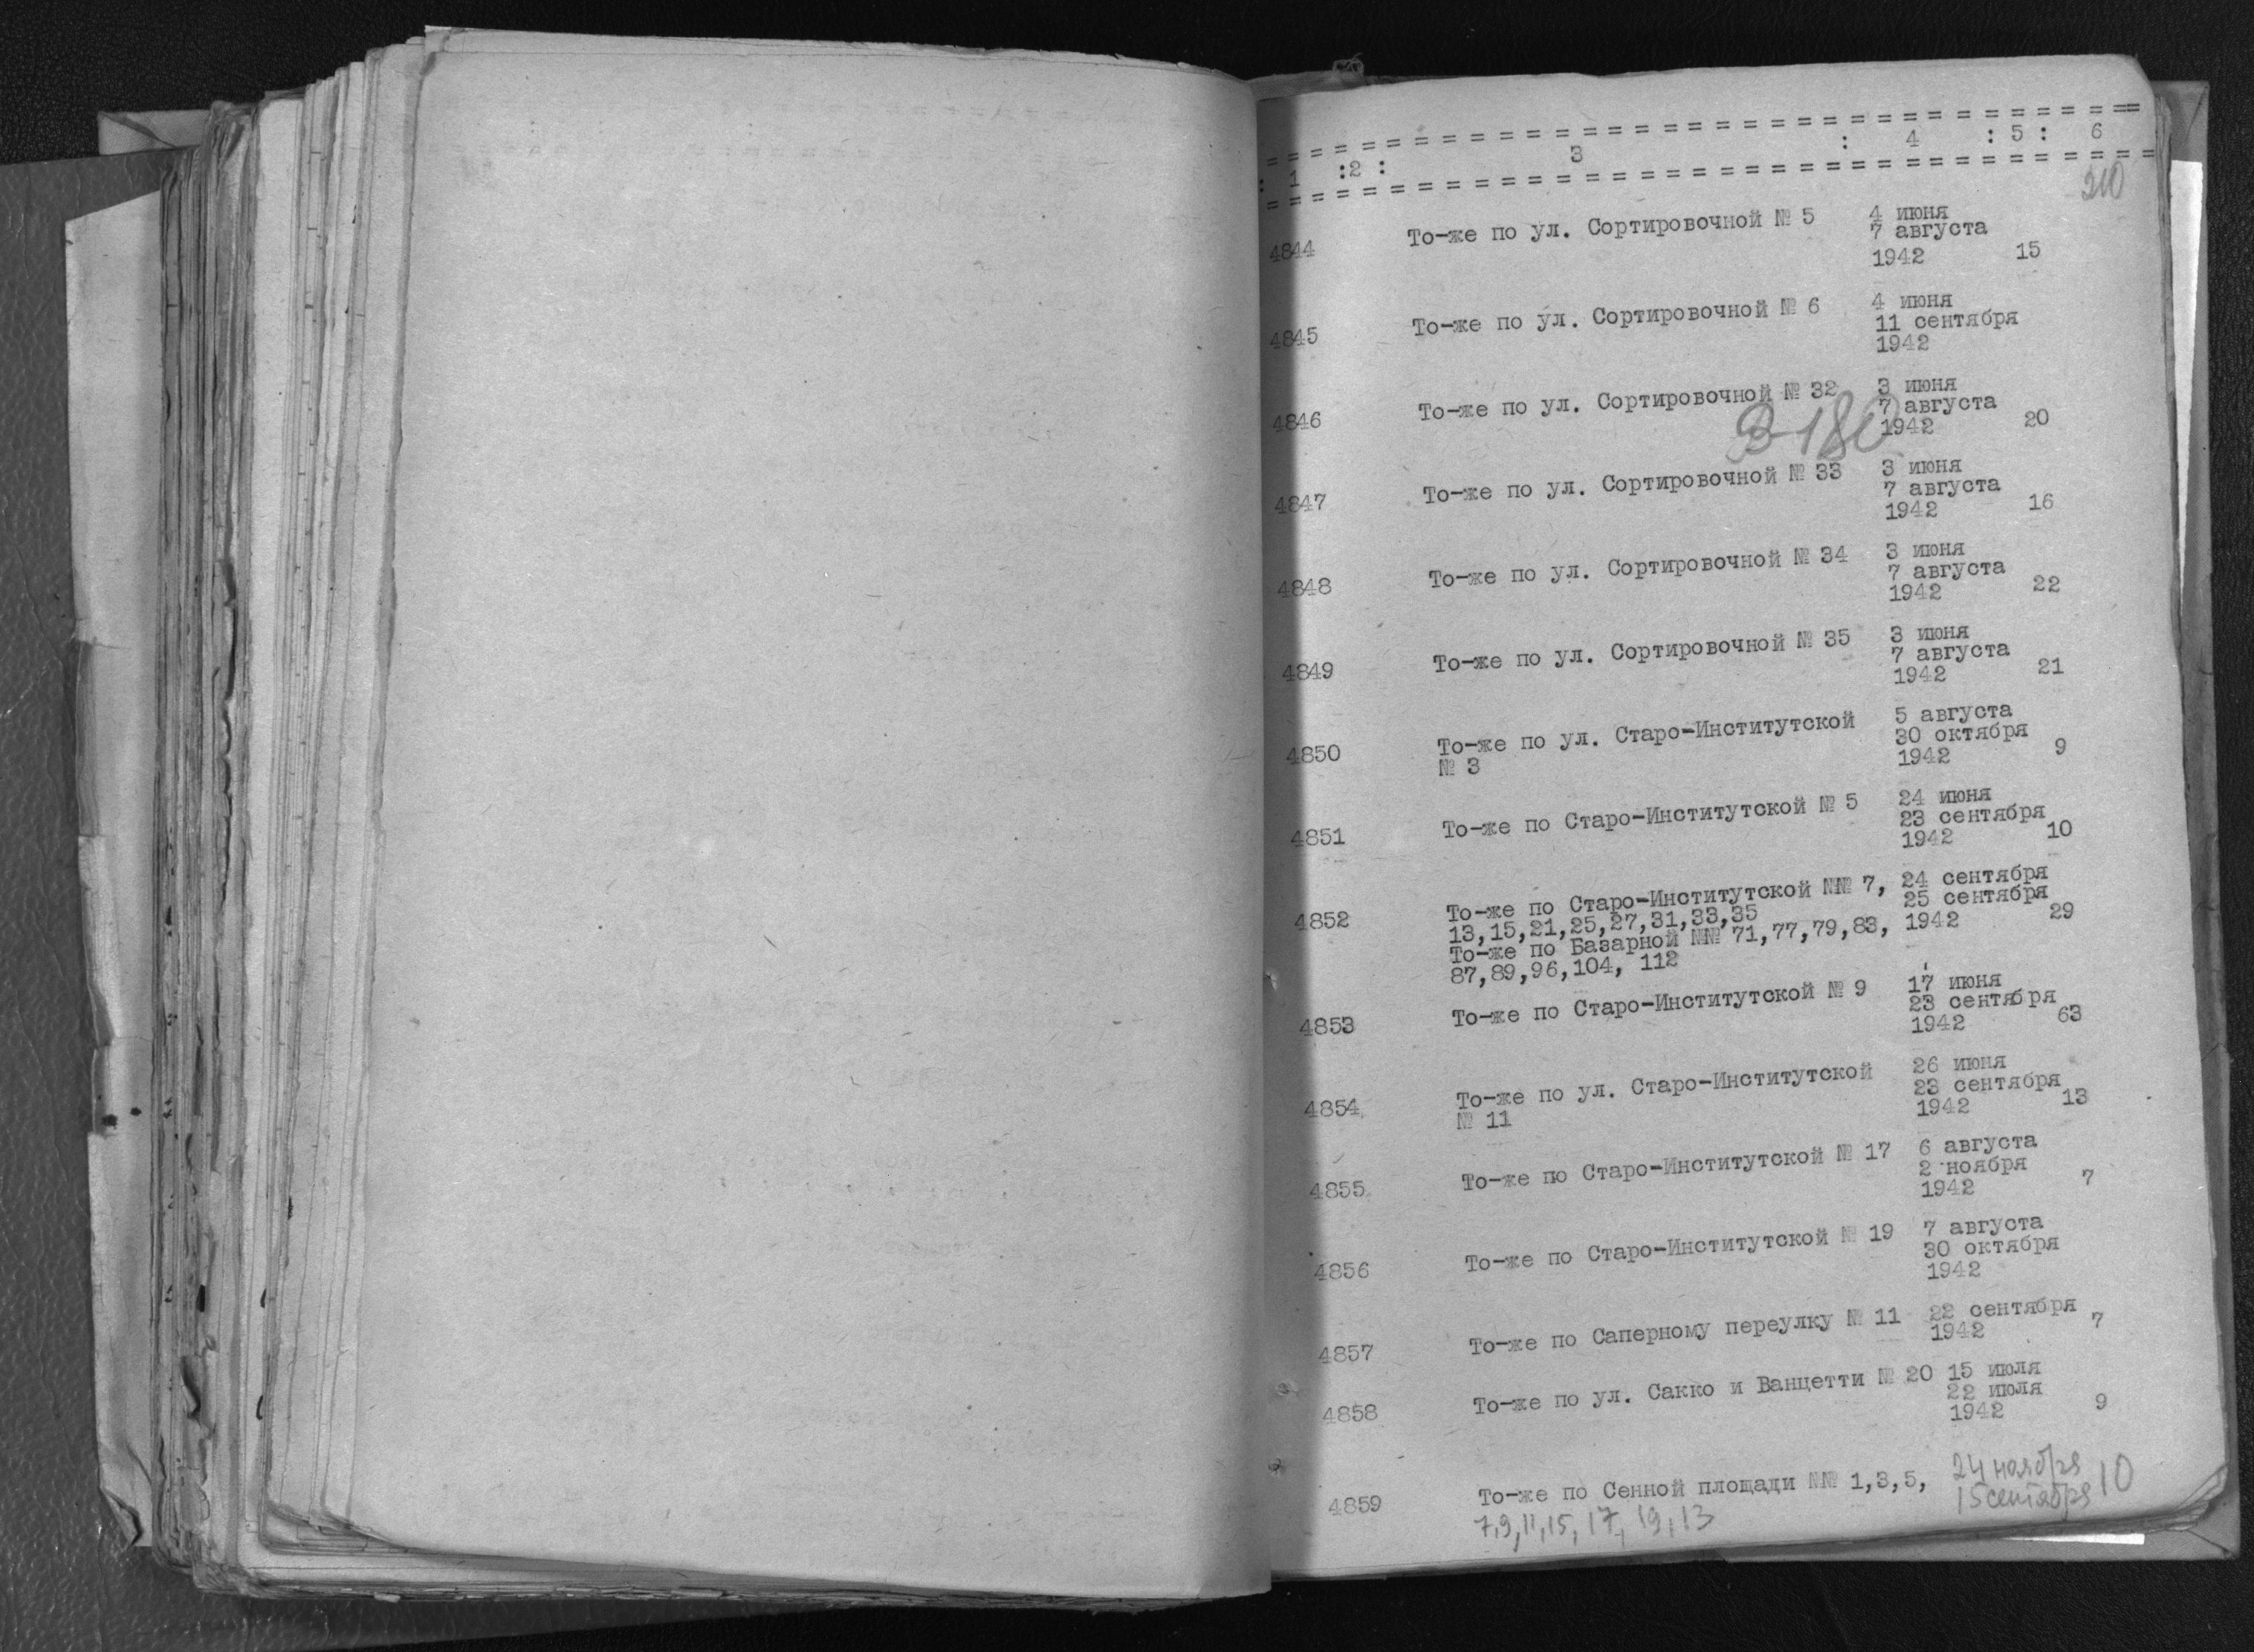 : 1 :2 : 3 : 4 : 5 : 6
210
4844 То-же по ул. Сортировочной № 5 4 июня
7 августа
1942 15
4845 То-же по ул. Сортировочной № 6 4 июня
11 сентября
1942
4846 То-же по ул. Сортировочной № 32 3 июня
7 августа
1942 20
4847 То-же по ул. Сортировочной № 33 3 июня
7 августа
1942 16
4848 То-же по ул. Сортировочной № 34 3 июня
7 августа
1942 22
4849 То-же по ул. Сортировочной № 35 3 июня
7 августа
1942 21
4850 То-же по ул. Старо-Институтской 5 августа
30 октября
№ 3 1942 9
4851 То-же по Старо-Институтской № 5 24 июня
23 сентября
1942 10
4852 То-же по Старо-Институтской №№ 7, 24 сентября
13,15,21,25,27,31,33,35 25 сентября
То-же по Базарной №№ 71,77,79,83, 1942 29
87,89,96,104, 112
4853 То-же по Старо-Институтской № 9 17 июня
23 сентября
1942 63
4854 То-же по ул. Старо-Институтской 26 июня
23 сентября
№ 11 1942 13
4855 То-же по Старо-Институтской № 17 6 августа
2 ноября
1942 7
4856 То-же по Старо-Институтской № 19 7 августа
30 октября
1942
4857 То-же по Саперному переулку № 11 22 сентября
1942 7
4858 То-же по ул. Сакко и Ванцетти № 20 15 июля
22 июля
1942 9
4859 То-же по Сенной площади №№ 1,3,5, 24 ноября
7,9,11,15,17,19,13 15 сентября 10